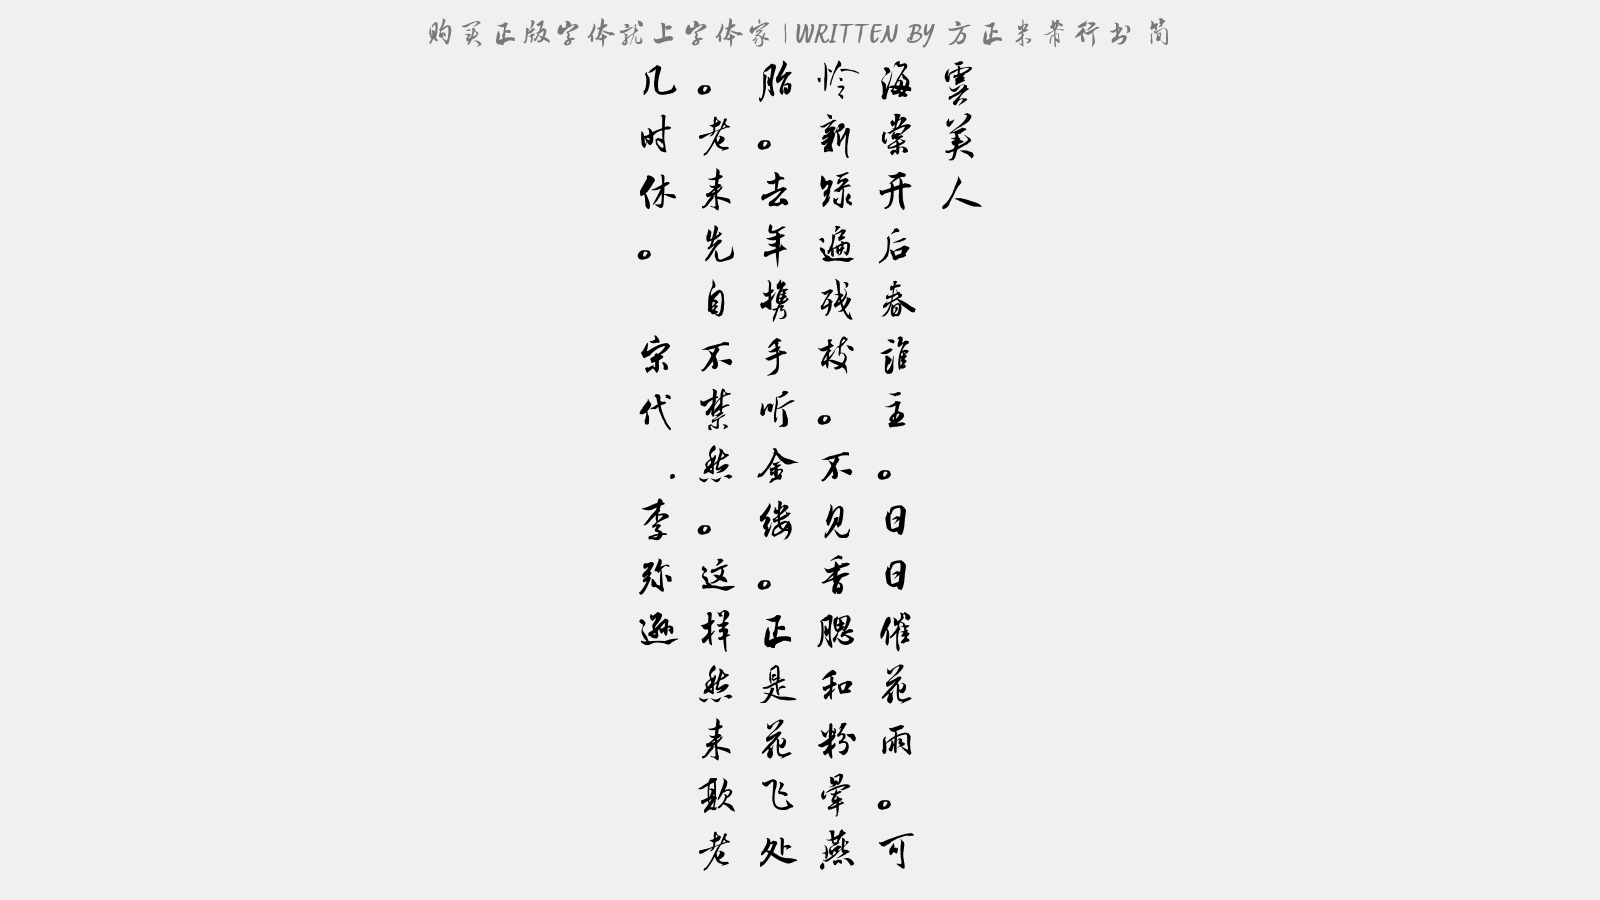 购买正版字体就上字体家 | WRITTEN BY 方正米芾行书 简
虞美人
海棠开后春谁主。日日催花雨。可
怜新绿遍残枝。不见香腮和粉晕燕
脂。去年携手听金缕。正是花飞处
。老来先自不禁愁。这样愁来欺老
几时休。 宋代 . 李弥逊